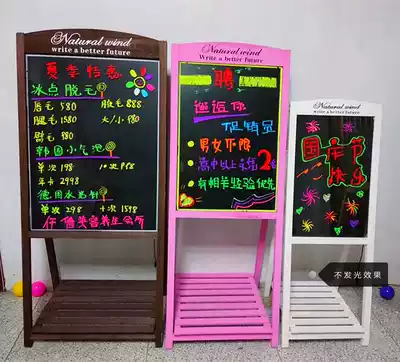 Natural wind
write a better future
夏季特惠
冰点脱毛
唇毛580 腋毛888
腿毛1580 大/小 980
臂毛 980
韩国小气泡
单次 198
年卡 2998
德国水光针
单次 298 十次 1598
Natural wind
Write a better future
聘
邂逅你
促销员
男女不限
高中以上学历 2名
有相关经验优先
Natural wind
write a better future
国庆节
快乐
不发光效果